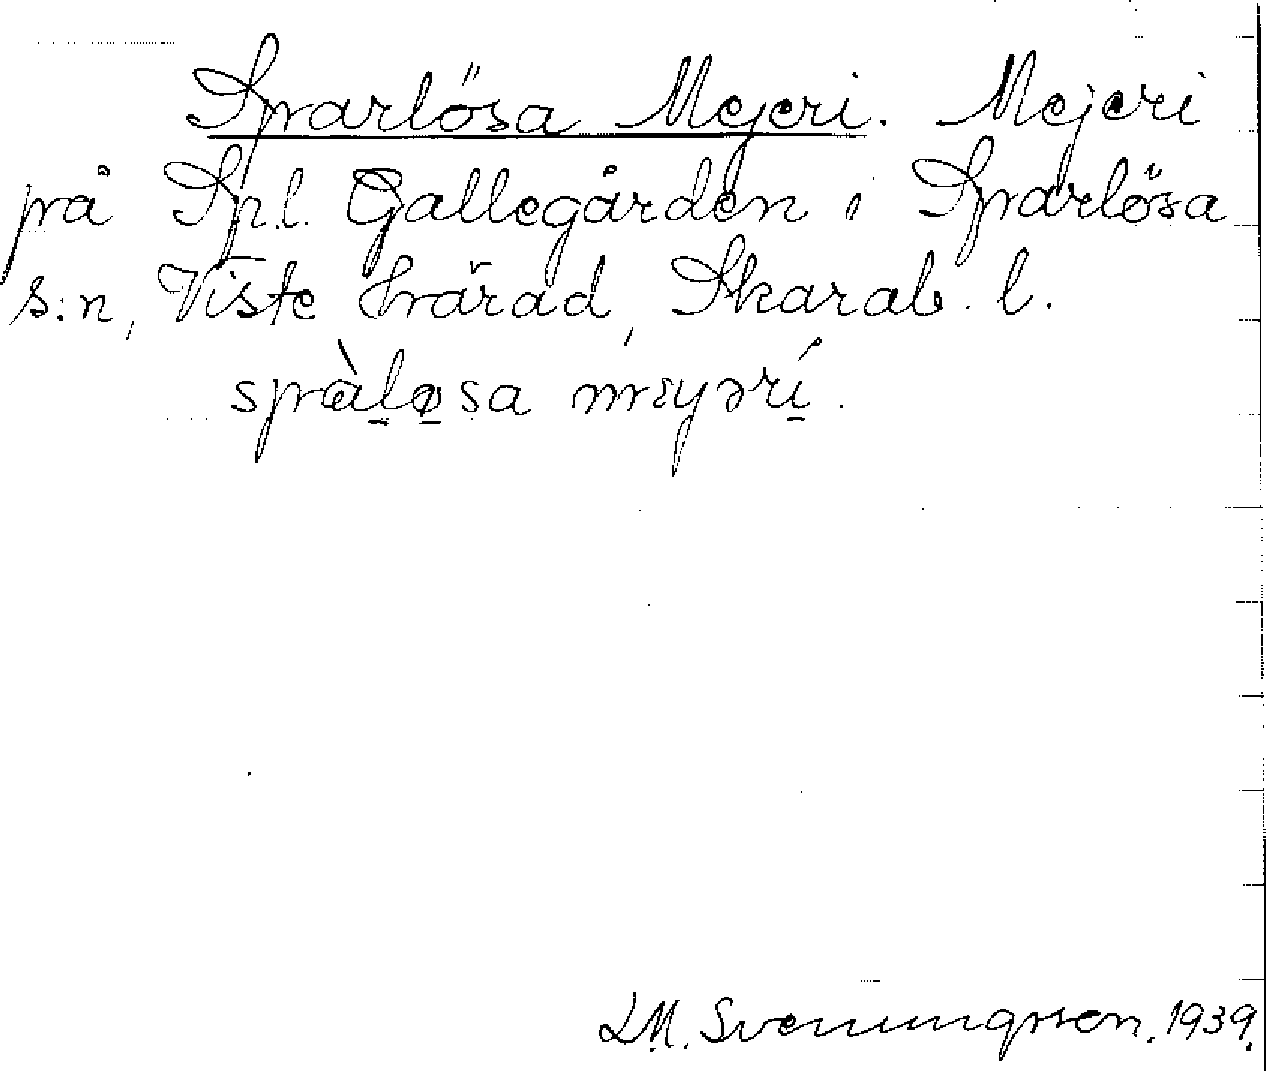 Sparlösa Mejeri. Mejeri
på Sp.l. Gallegården i Sparlösa
s:n, Viste härad, Skarab. l.
spàlø̱sa mεyərí̱.
L.M. Svenungsson. 1939.